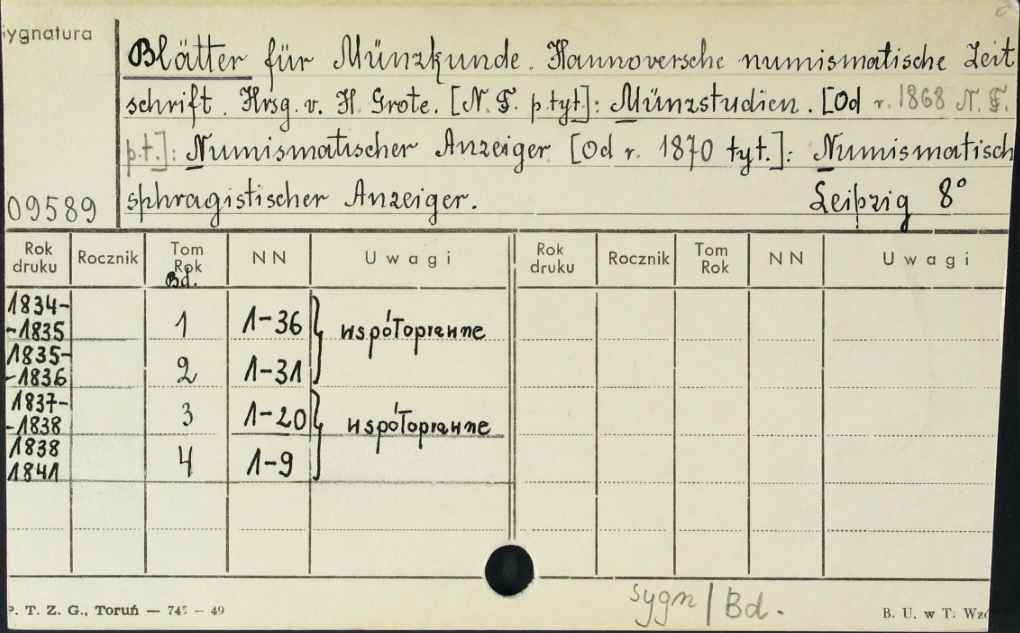 Sygnatura
Blätter für Münzkunde. Hannoversche numismatische Zeit
schrift. Hrsg. v. H. Grote. [N. F. p. tyt]: Münzstudien. [Od r. 1868 N. F.
p.t.]: Numismatischer Anzeiger [Od r. 1870 tyt.]: Numismatisch
sphragistischer Anzeiger. Leipzig 8°
09589
Rok druku Rocznik Tom Rok Bd. NN Uwagi Rok druku Rocznik Tom Rok NN Uwagi
1834-
-1835 1 1-36 współoprawne
1835-
-1836 2 1-31
1837-
-1838 3 1-20 współoprawne
1838
1841 4 1-9
sygn/Bd.
P. T. Z. G., Toruń — 745 – 49 B. U. w T. Wzó